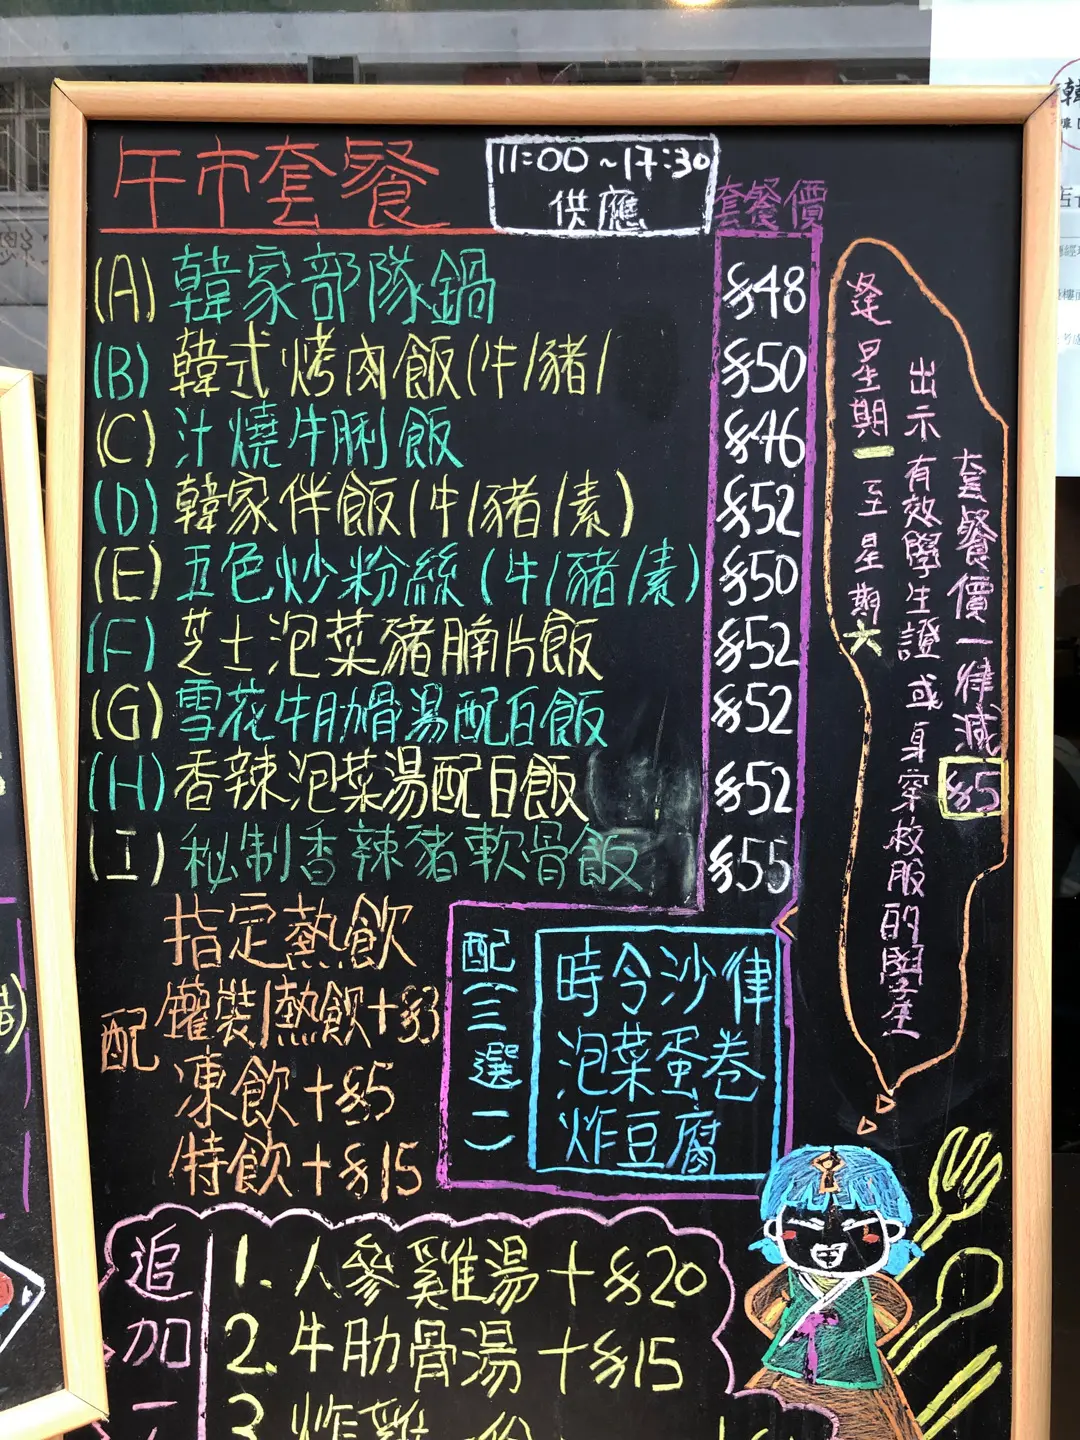 午市套餐
11:00~17:30
供應
套餐價
(A) 韓家部隊鍋 $48
(B) 韓式烤肉飯(牛/豬/ $50
(C) 汁燒牛脷飯 $46
(D) 韓家伴飯(牛/豬/素) $52
(E) 五色炒粉絲(牛/豬/素) $50
(F) 芝士泡菜豬腩片飯 $52
(G) 雪花牛肋骨湯配白飯 $52
(H) 香辣泡菜湯配白飯 $52
(I) 秘制香辣豬軟骨飯 $55
逢星期一至星期六
出示有效學生證或身穿校服的學生
套餐價一律減$5
配
指定熱飲
罐裝熱飲+$3
凍飲+$5
特飲+$15
配(三選一)
時令沙律
泡菜蛋卷
炸豆腐
追加
1. 人參雞湯+$20
2. 牛肋骨湯+$15
3. 炸雞